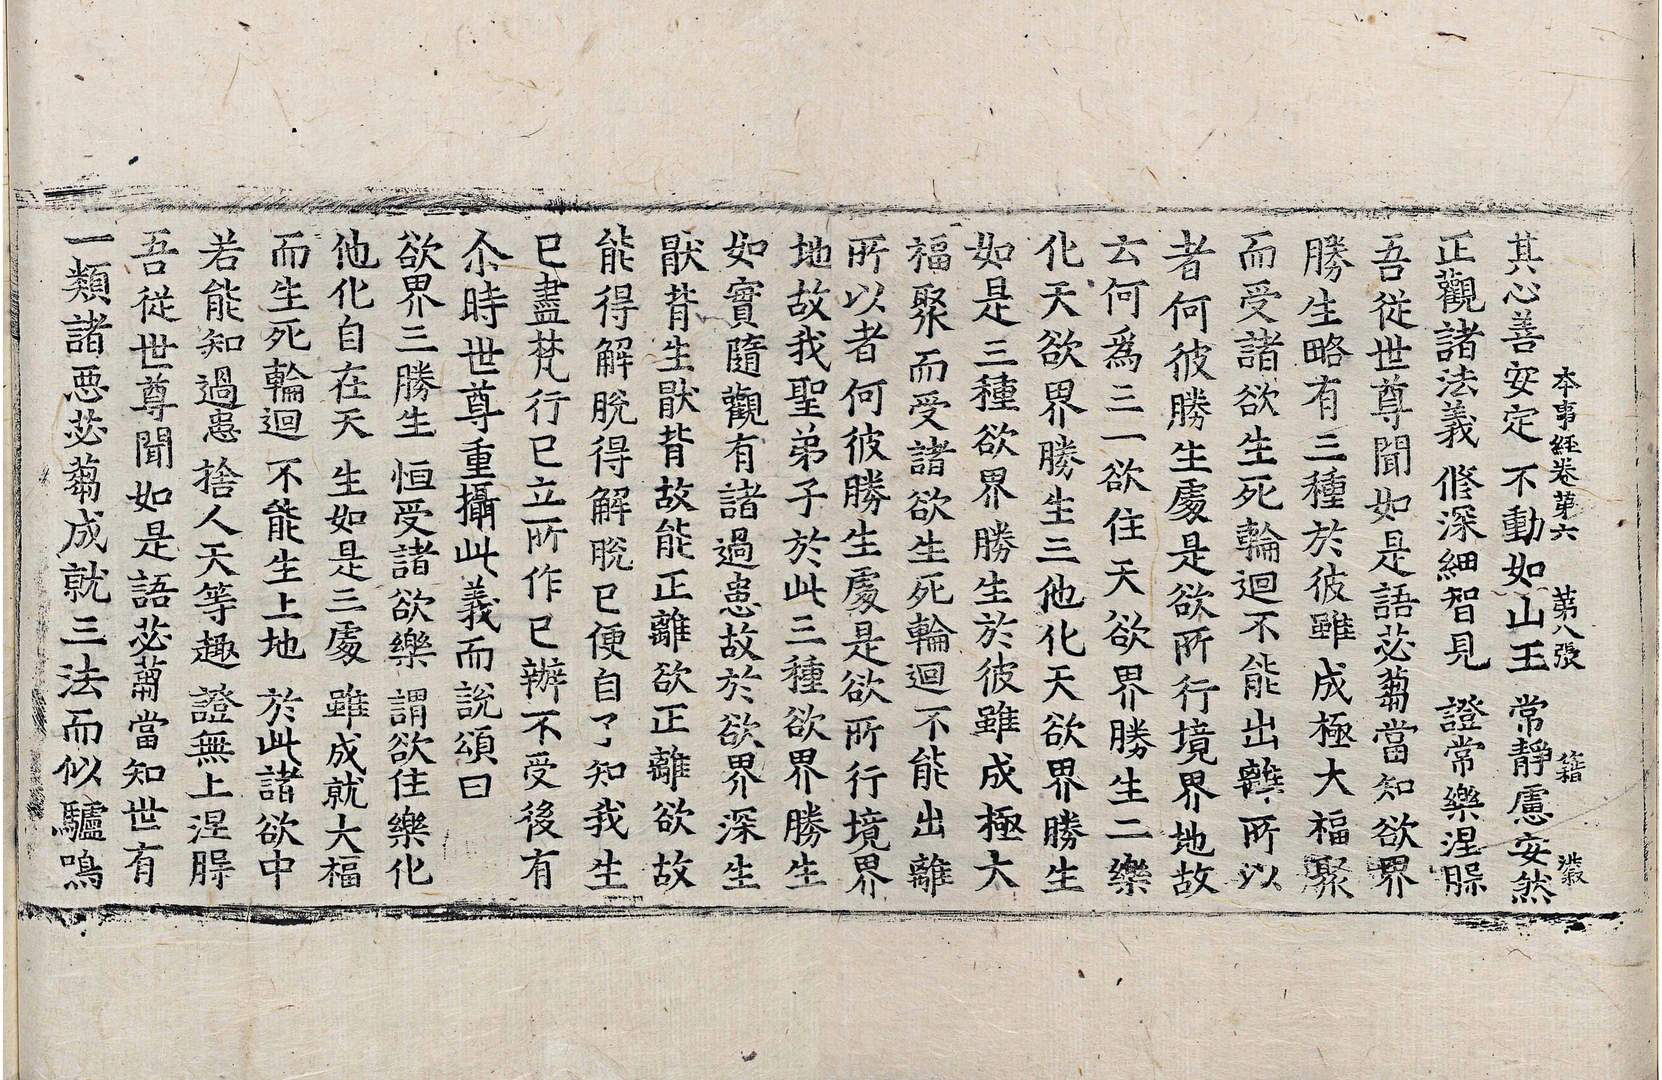 本事経卷苐六 苐八張 籍
其心善安定 不動如山王 常靜慮安然
正觀諸法義 修深細智見 證常樂涅腂
吾從世尊聞如是語苾蒭當知欲界
勝生略有三種於彼雖成極大福聚
而受諸欲生死輪迴不能出離所以
者何彼勝生處是欲所行境界地故
云何爲三一欲住天欲界勝生二樂
化天欲界勝生三他化天欲界勝生
如是三種欲界勝生於彼雖成極大
福聚而受諸欲生死輪迴不能出離
所以者何彼勝生處是欲所行境界
地故我聖弟子於此三種欲界勝生
如實隨觀有諸過患故於欲界深生
猒背生猒背故能正離欲正離欲故
能得解脫得解脫已便自了知我生
已盡梵行已立所作已辦不受後有
尒時世尊重攝此義而說頌曰
欲界三勝生 恒受諸欲樂 謂欲住樂化
他化自在天 生如是三處 雖成就大福
而生死輪迴 不能生上地 於此諸欲中
若能知過患 捨人天等趣 證無上涅腂
吾從世尊聞如是語苾蒭當知世有
一類諸惡苾蒭成就三法而似驢鳴